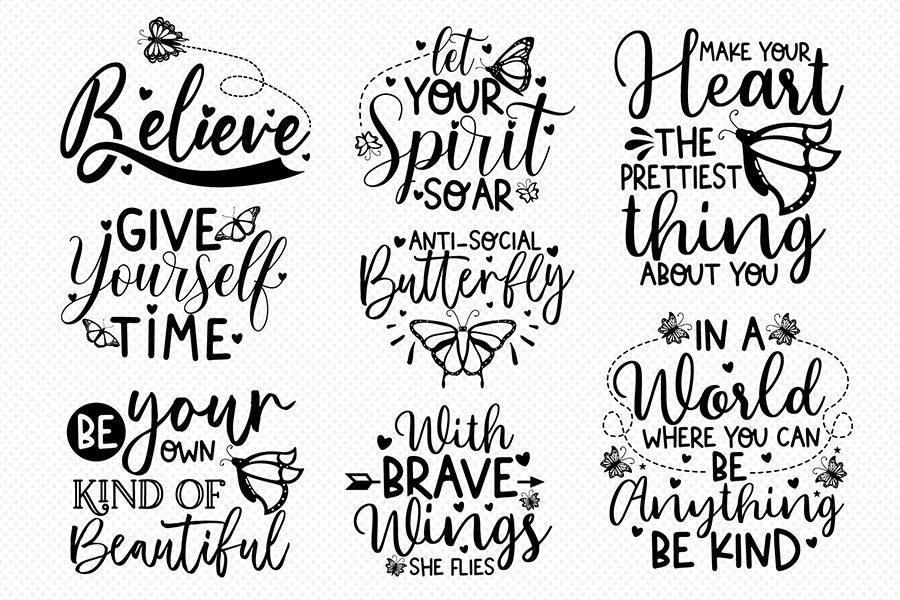 Believe
GIVE
Yourself
TIME
BE your
OWN
KIND OF
Beautiful
let
YOUR
Spirit
SOAR
ANTI-SOCIAL
Butterfly
With
BRAVE
Wings
SHE FLIES
MAKE YOUR
Heart
THE
PRETTIEST
thing
ABOUT YOU
IN A
World
WHERE YOU CAN
BE
Anything
BE KIND